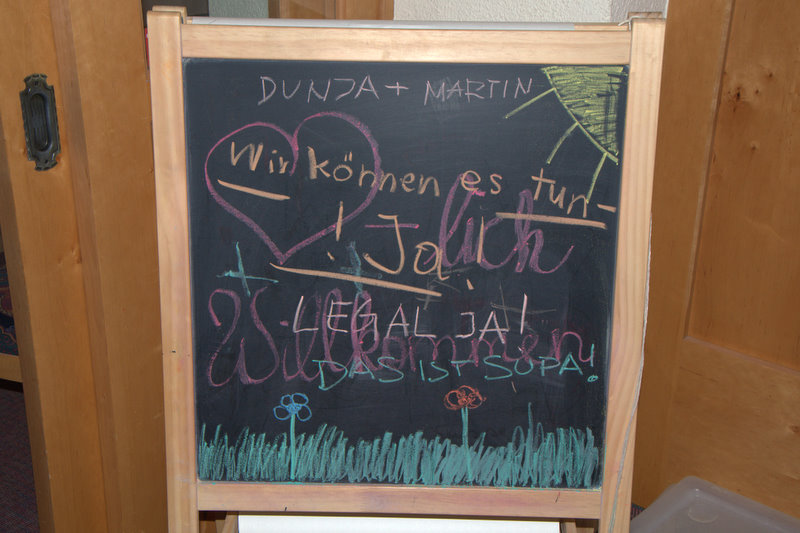 DUNJA + MARTIN
Wir können es tun-
! Ja!
lich
LEGAL JA!
Willkommen
DAS IST SUPA!